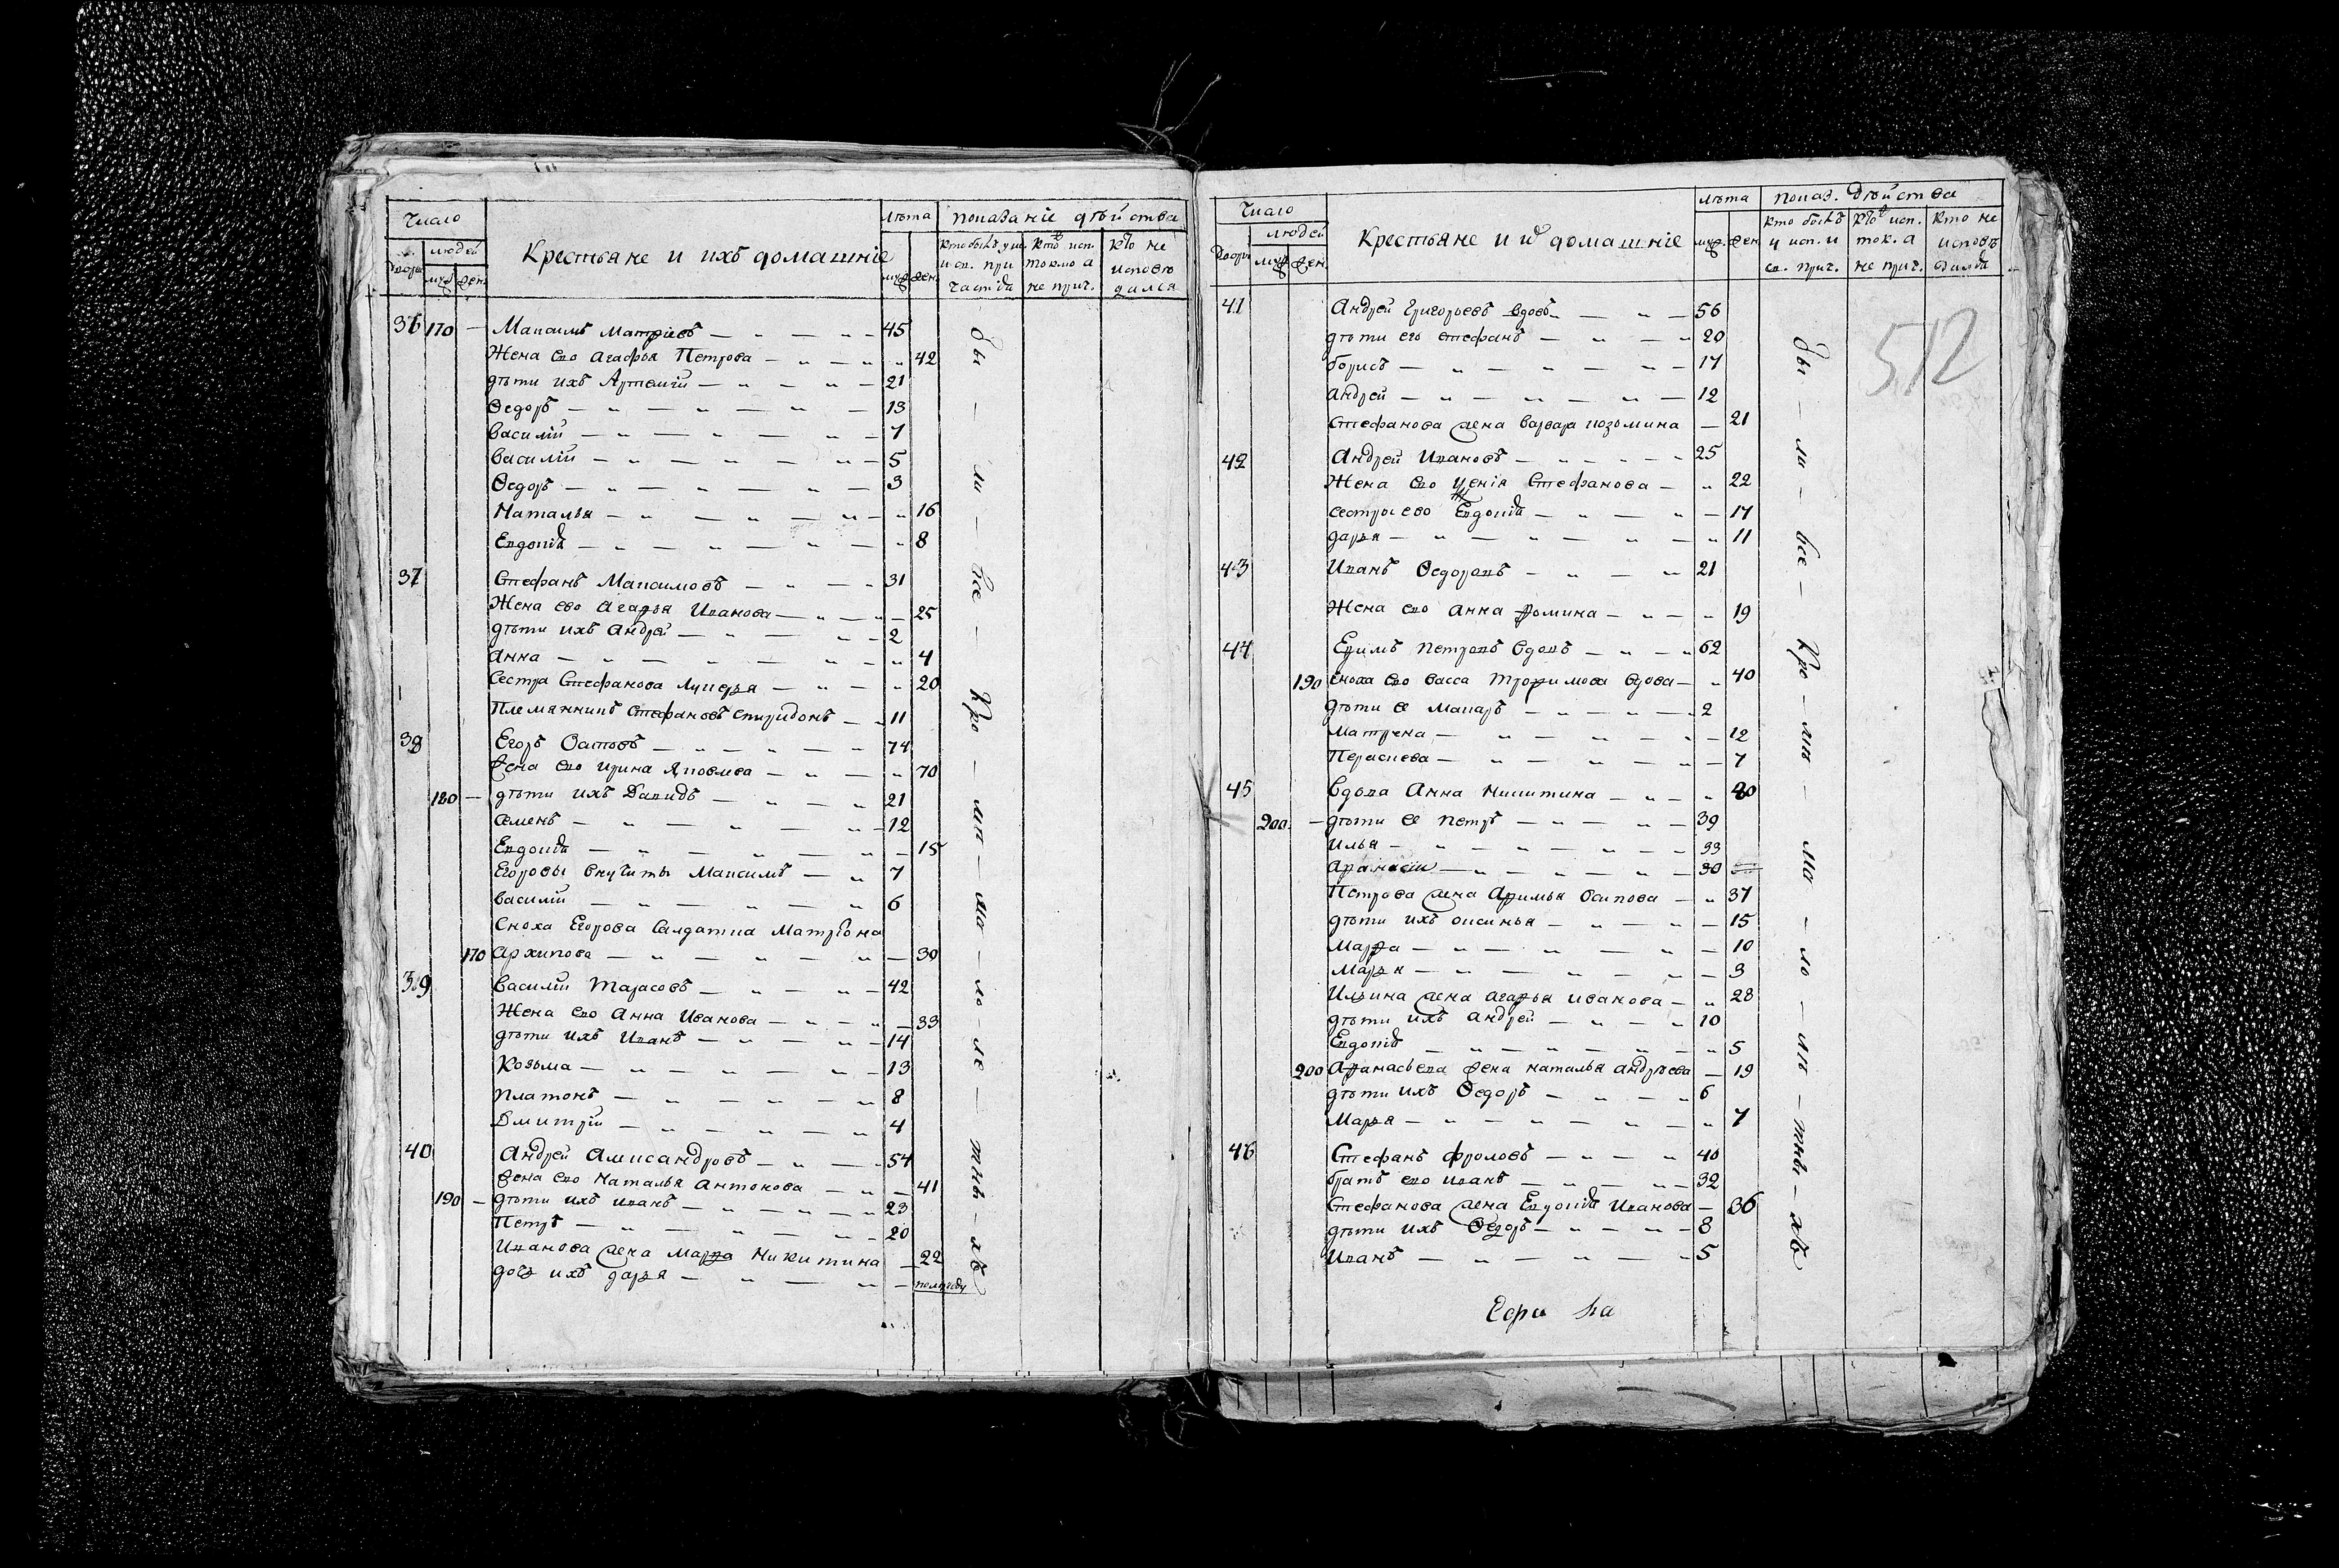 Число
людей
двор. муж. жен.
Крестьяне и ихъ домашніе
лѣта
муж. жен.
показаніе дѣйства
кто былъ у ис. и св. при частіѧ
кто исп. токмо а не прич.
кто не исповѣ дался
36 170 — Максимъ Матвѣевъ 45
Жена его Агафья Петрова 42
дѣти ихъ Артемій 21
Ѳедоръ 13
Василій 7
Василій 5
Ѳедоръ 3
Наталья 16
Евдокіѧ 8
37 Стефанъ Максимовъ 31
Жена его Агафья Иванова 25
дѣти ихъ Андрей 2
Анна 4
Сестра Стефанова Лукерья 20
Племянникъ Стефановъ Спиридонъ 11
38 Егоръ Осиповъ 74
Жена его Ирина Яковлева 70
180 — дѣти ихъ Давидъ 21
Семенъ 12
Евдокіѧ 15
Егоровы внучиты Максимъ 7
Василій 6
Сноха Егорова Салдатка Матрїона
170 Архипова 30
39 Василій Тарасовъ 42
Жена его Анна Иванова 33
дѣти ихъ Иванъ 14
Козьма 13
Платонъ 8
Дмитрій 4
40 Андрей Алисандровъ 54
Жена его Наталья Антонова 41
190 — дѣти ихъ Иванъ 23
Петръ 20
Иванова жена Марфа Никитина 22
дочь ихъ дарья полгоду
бы — ли — все — Кро — мѣ — ма — ло — лѣ — тнъ — хъ
Число
людей
двор. муж. жен.
Крестьяне и ихъ домашніе
лѣта
муж. жен.
показ. дѣйства
кто былъ у исп. и св. прич.
кто исп. ток. а не прич.
кто не исповѣ дался
512
41 Андрей Григорьевъ вдовъ 56
дѣти его Стефанъ 20
борисъ 17
Андрей 12
Стефанова жена Варвара козомина 21
42 Андрей Ивановъ 25
Жена его Ксенія Стефанова 22
сестры ево Евдокіѧ 17
дарья 11
43 Иванъ Ѳедоровъ 21
Жена его Анна фомина 19
44 Ефимъ Петровъ вдовъ 62
190 сноха его Васса Трофимова вдова 40
дѣти ее Макаръ 2
Матрена 12
Пераскева 7
45 Вдова Анна Никитина 80
200 — дѣти ее Петръ 39
Илья 33
Афанасій 30
Петрова жена Афимья Осипова 37
дѣти ихъ оксинья 15
Марфа 10
Марья 3
Ильина жена Агафья Иванова 28
дѣти ихъ Андрей 10
Евдокіѧ 5
200 Афанасьева жена Наталья Андрѣева 19
дѣти ихъ Ѳедоръ 6
Марья 7
46 Стефанъ Фроловъ 40
братъ его Иванъ 32
Стефанова жена Евдокіѧ Иванова 36
дѣти ихъ Ѳедоръ 8
Иванъ 5
бы — ли — все — Кро — мѣ — ма — ло — лѣ — тнъ — хъ